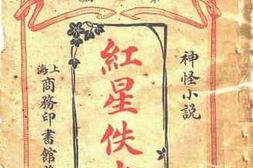 神怪小説
紅星佚
上海
商務印書館